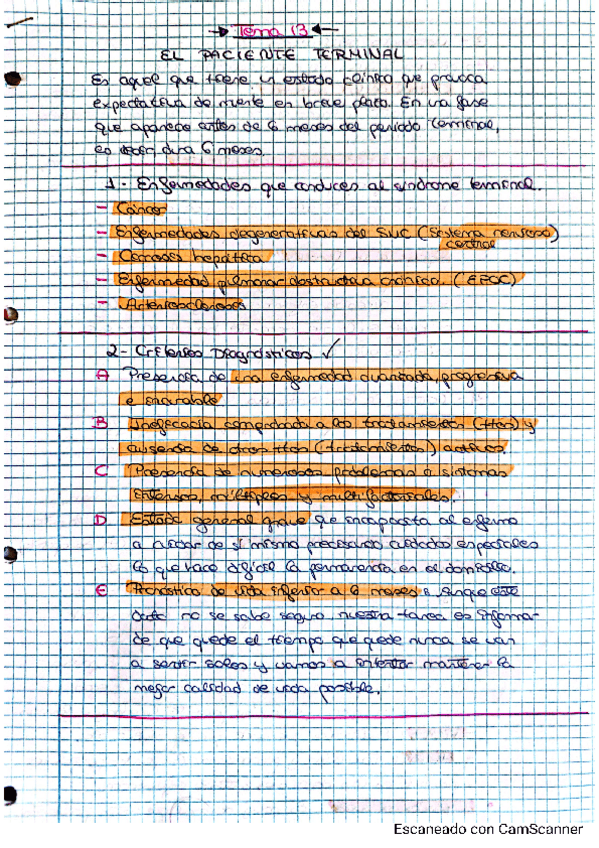 Tema 13
EL PACIENTE TERMINAL
Es aquel que tiene un estado clínico que provoca
expectativa de muerte en breve plazo. En una fase
que aparece antes de 6 meses del periodo terminal,
es decir, dura 6 meses.
1- Enfermedades que conduces al síndrome terminal.
- Cáncer
- Enfermedades degenerativas del SNC (Sistema nervioso
central)
- Cirrosis hepática
- Enfermedad pulmonar obstructiva crónica. (EPOC)
- Arterioesclerosis
2- Criterios Diagnósticos ✓
A Presencia de una enfermedad avanzada, progresiva
e incurable
B Ineficacia comprobada a los tratamientos (ttos) y
ausencia de otros ttos (tratamientos) activos.
C Presencia de numerosos problemas o síntomas
intensos, múltiples y multifactoriales.
D Estado general grave que incapacita al enfermo
a cuidar de sí mismo precisando cuidados especiales
lo que hace difícil la permanencia en el domicilio.
E Pronóstico de vida inferior a 6 meses: aunque este
dato no se sabe seguro, nuestra tarea es informar
de que quede el tiempo que quede nunca se van
a sentir solos y vamos a intentar mantener la
mejor calidad de vida posible.
Escaneado con CamScanner